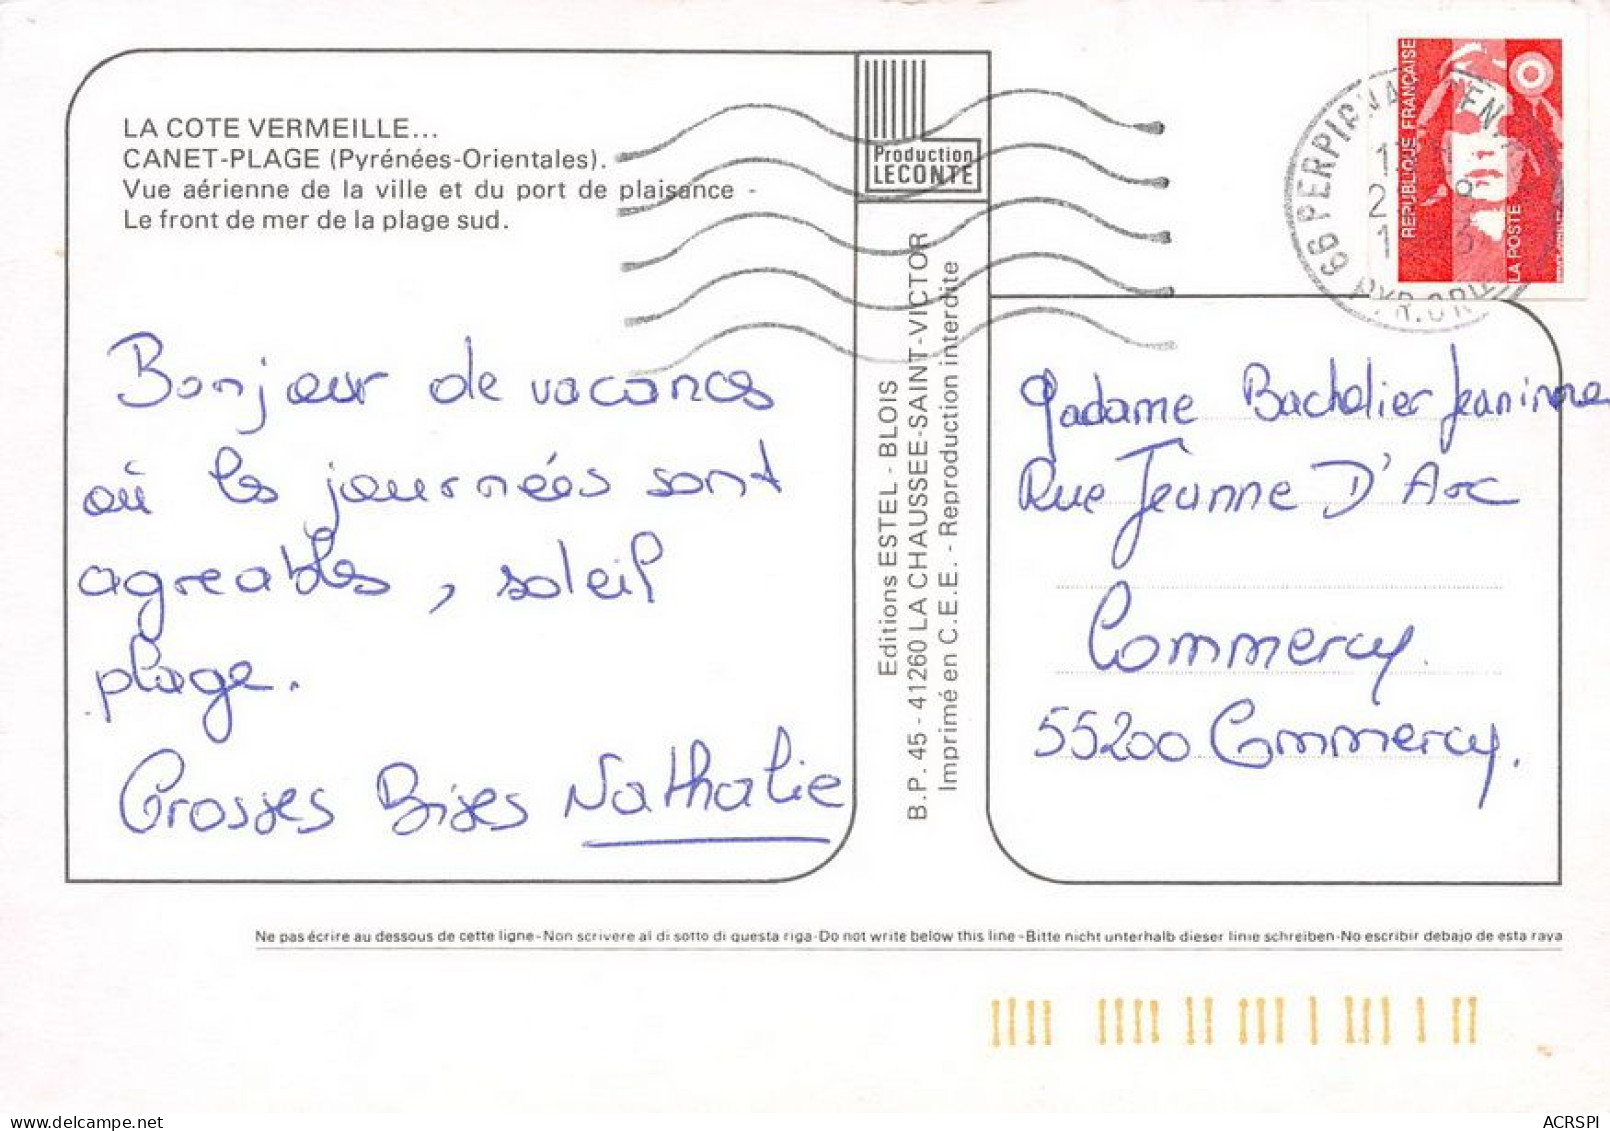 LA COTE VERMEILLE...
CANET-PLAGE (Pyrénées-Orientales).
Vue aérienne de la ville et du port de plaisance -
Le front de mer de la plage sud.
Bonjour de vacances
où les journées sont
agreables, soleil
plage.
Grosses Bises Nathalie
Production
LECONTE
Editions ESTEL - BLOIS
B.P. 45 - 41260 LA CHAUSSEE-SAINT-VICTOR
Imprimé en C.E.E. - Reproduction interdite
REPUBLIQUE FRANÇAISE
LA POSTE
66 PERPIGNAN
PYR.OR
Madame Bachelier Jeaninne
Rue Jeanne D'Arc
Commercy.
55200 Commercy.
Ne pas écrire au dessous de cette ligne-Non scrivere al di sotto di questa riga-Do not write below this line-Bitte nicht unterhalb dieser linie schreiben-No escribir debajo de esta raya
ACRSPI